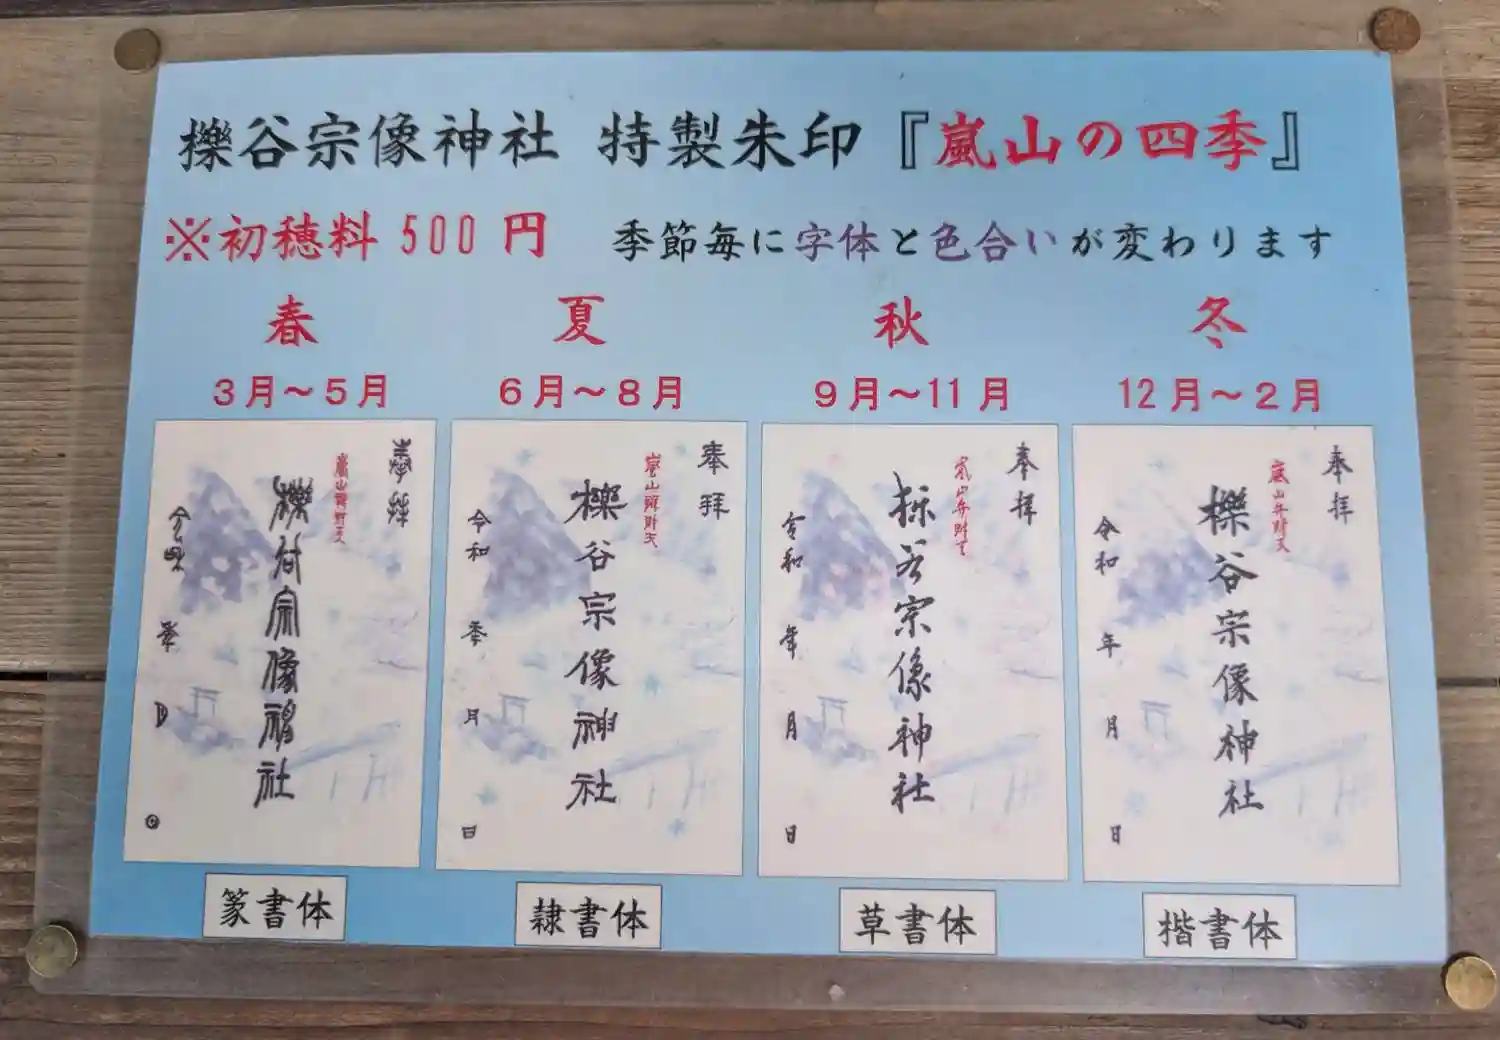 櫟谷宗像神社 特製朱印『嵐山の四季』
※初穂料 500 円 季節毎に字体と色合いが変わります
春 夏 秋 冬
3月～5月 6月～8月 9月～11月 12月～2月
奉拝
嵐山辨財天
櫟谷宗像神社
令和 年 月 日
奉拝
嵐山辨財天
櫟谷宗像神社
令和 年 月 日
奉拝
嵐山弁財天
櫟谷宗像神社
令和 年 月 日
奉拝
嵐山弁財天
櫟谷宗像神社
令和 年 月 日
篆書体 隷書体 草書体 楷書体